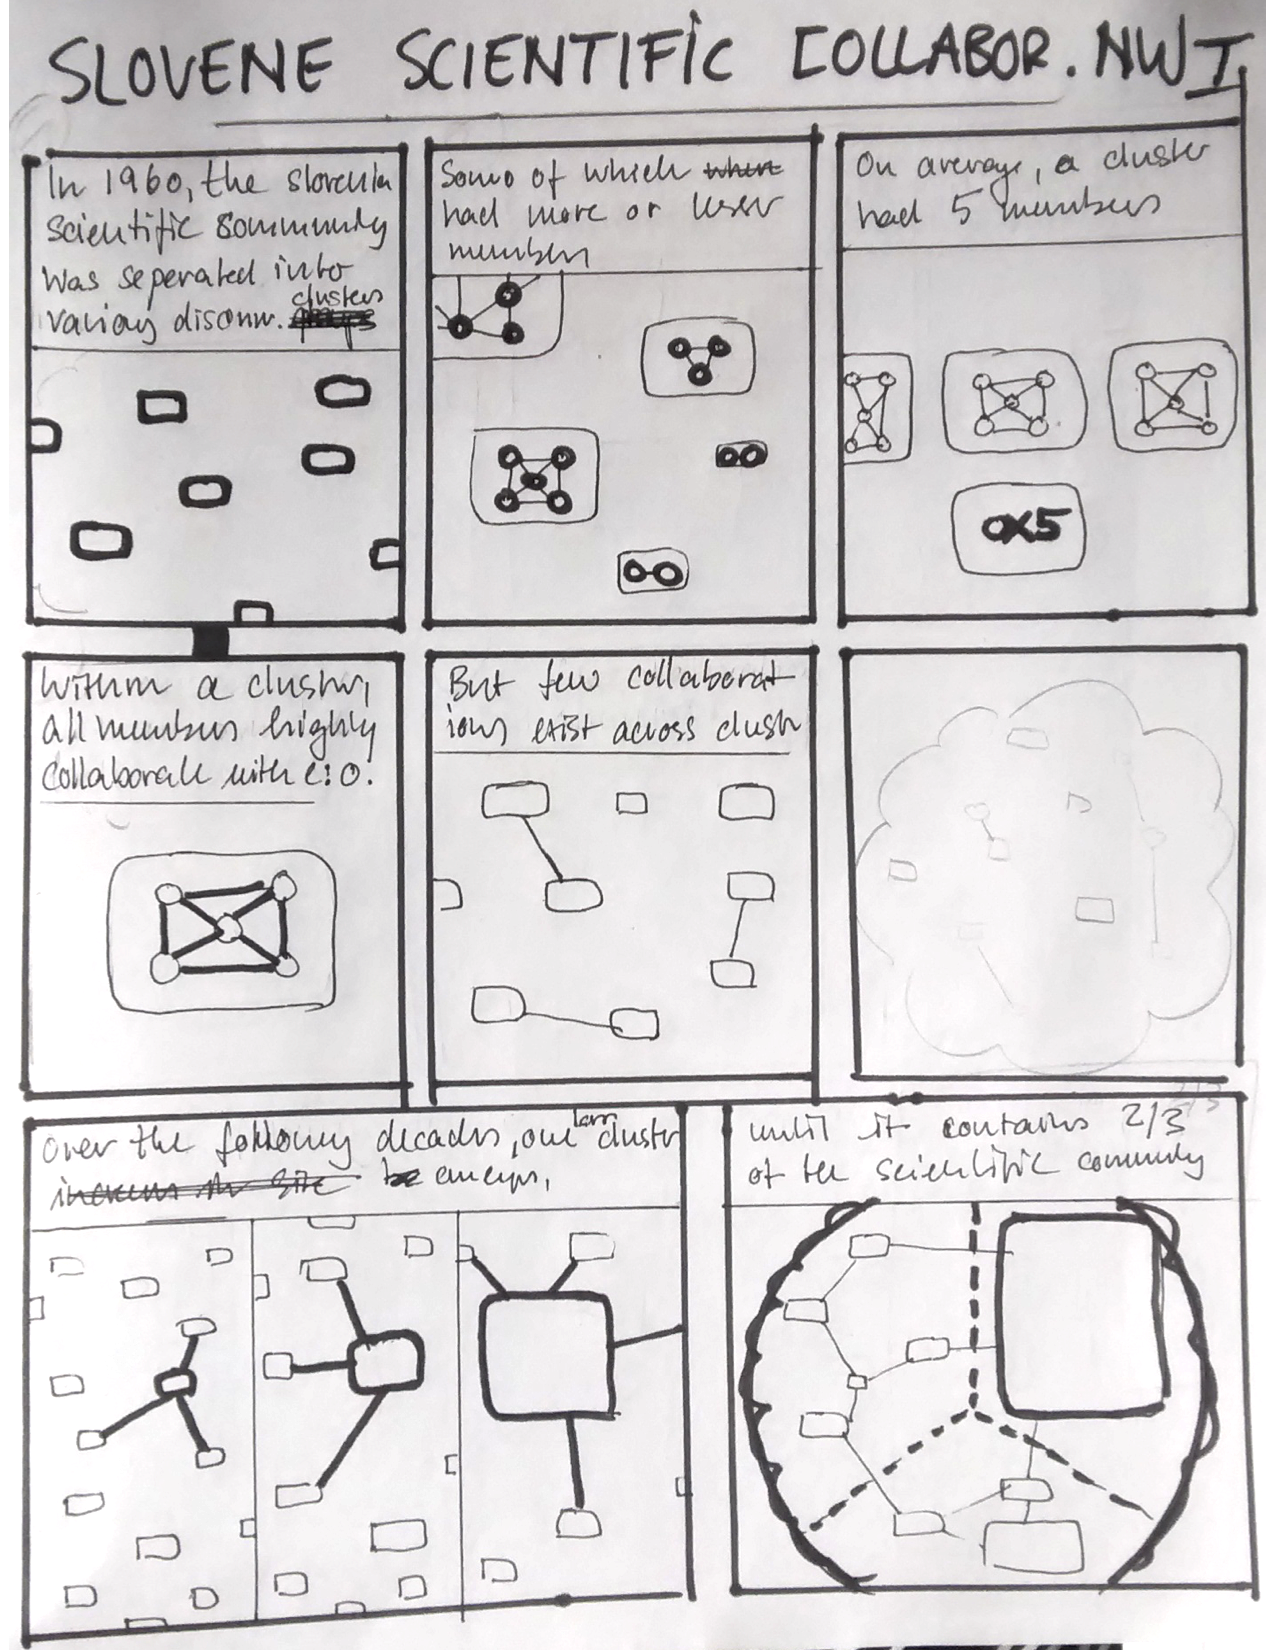 SLOVENE SCIENTIFIC COLLABOR. NW I
In 1960, the slovenia
scientific community
was seperated into
clusters
disconn. groups
Some of which where
had more or lesser
members
On average, a cluster
had 5 members
OX5
Within a cluster,
all members highly
collaborate with e.o.
But few collaborat
ions exist across clust
2/3
Over the following decades, one cluster
until it contains 2/3
of the scientific community